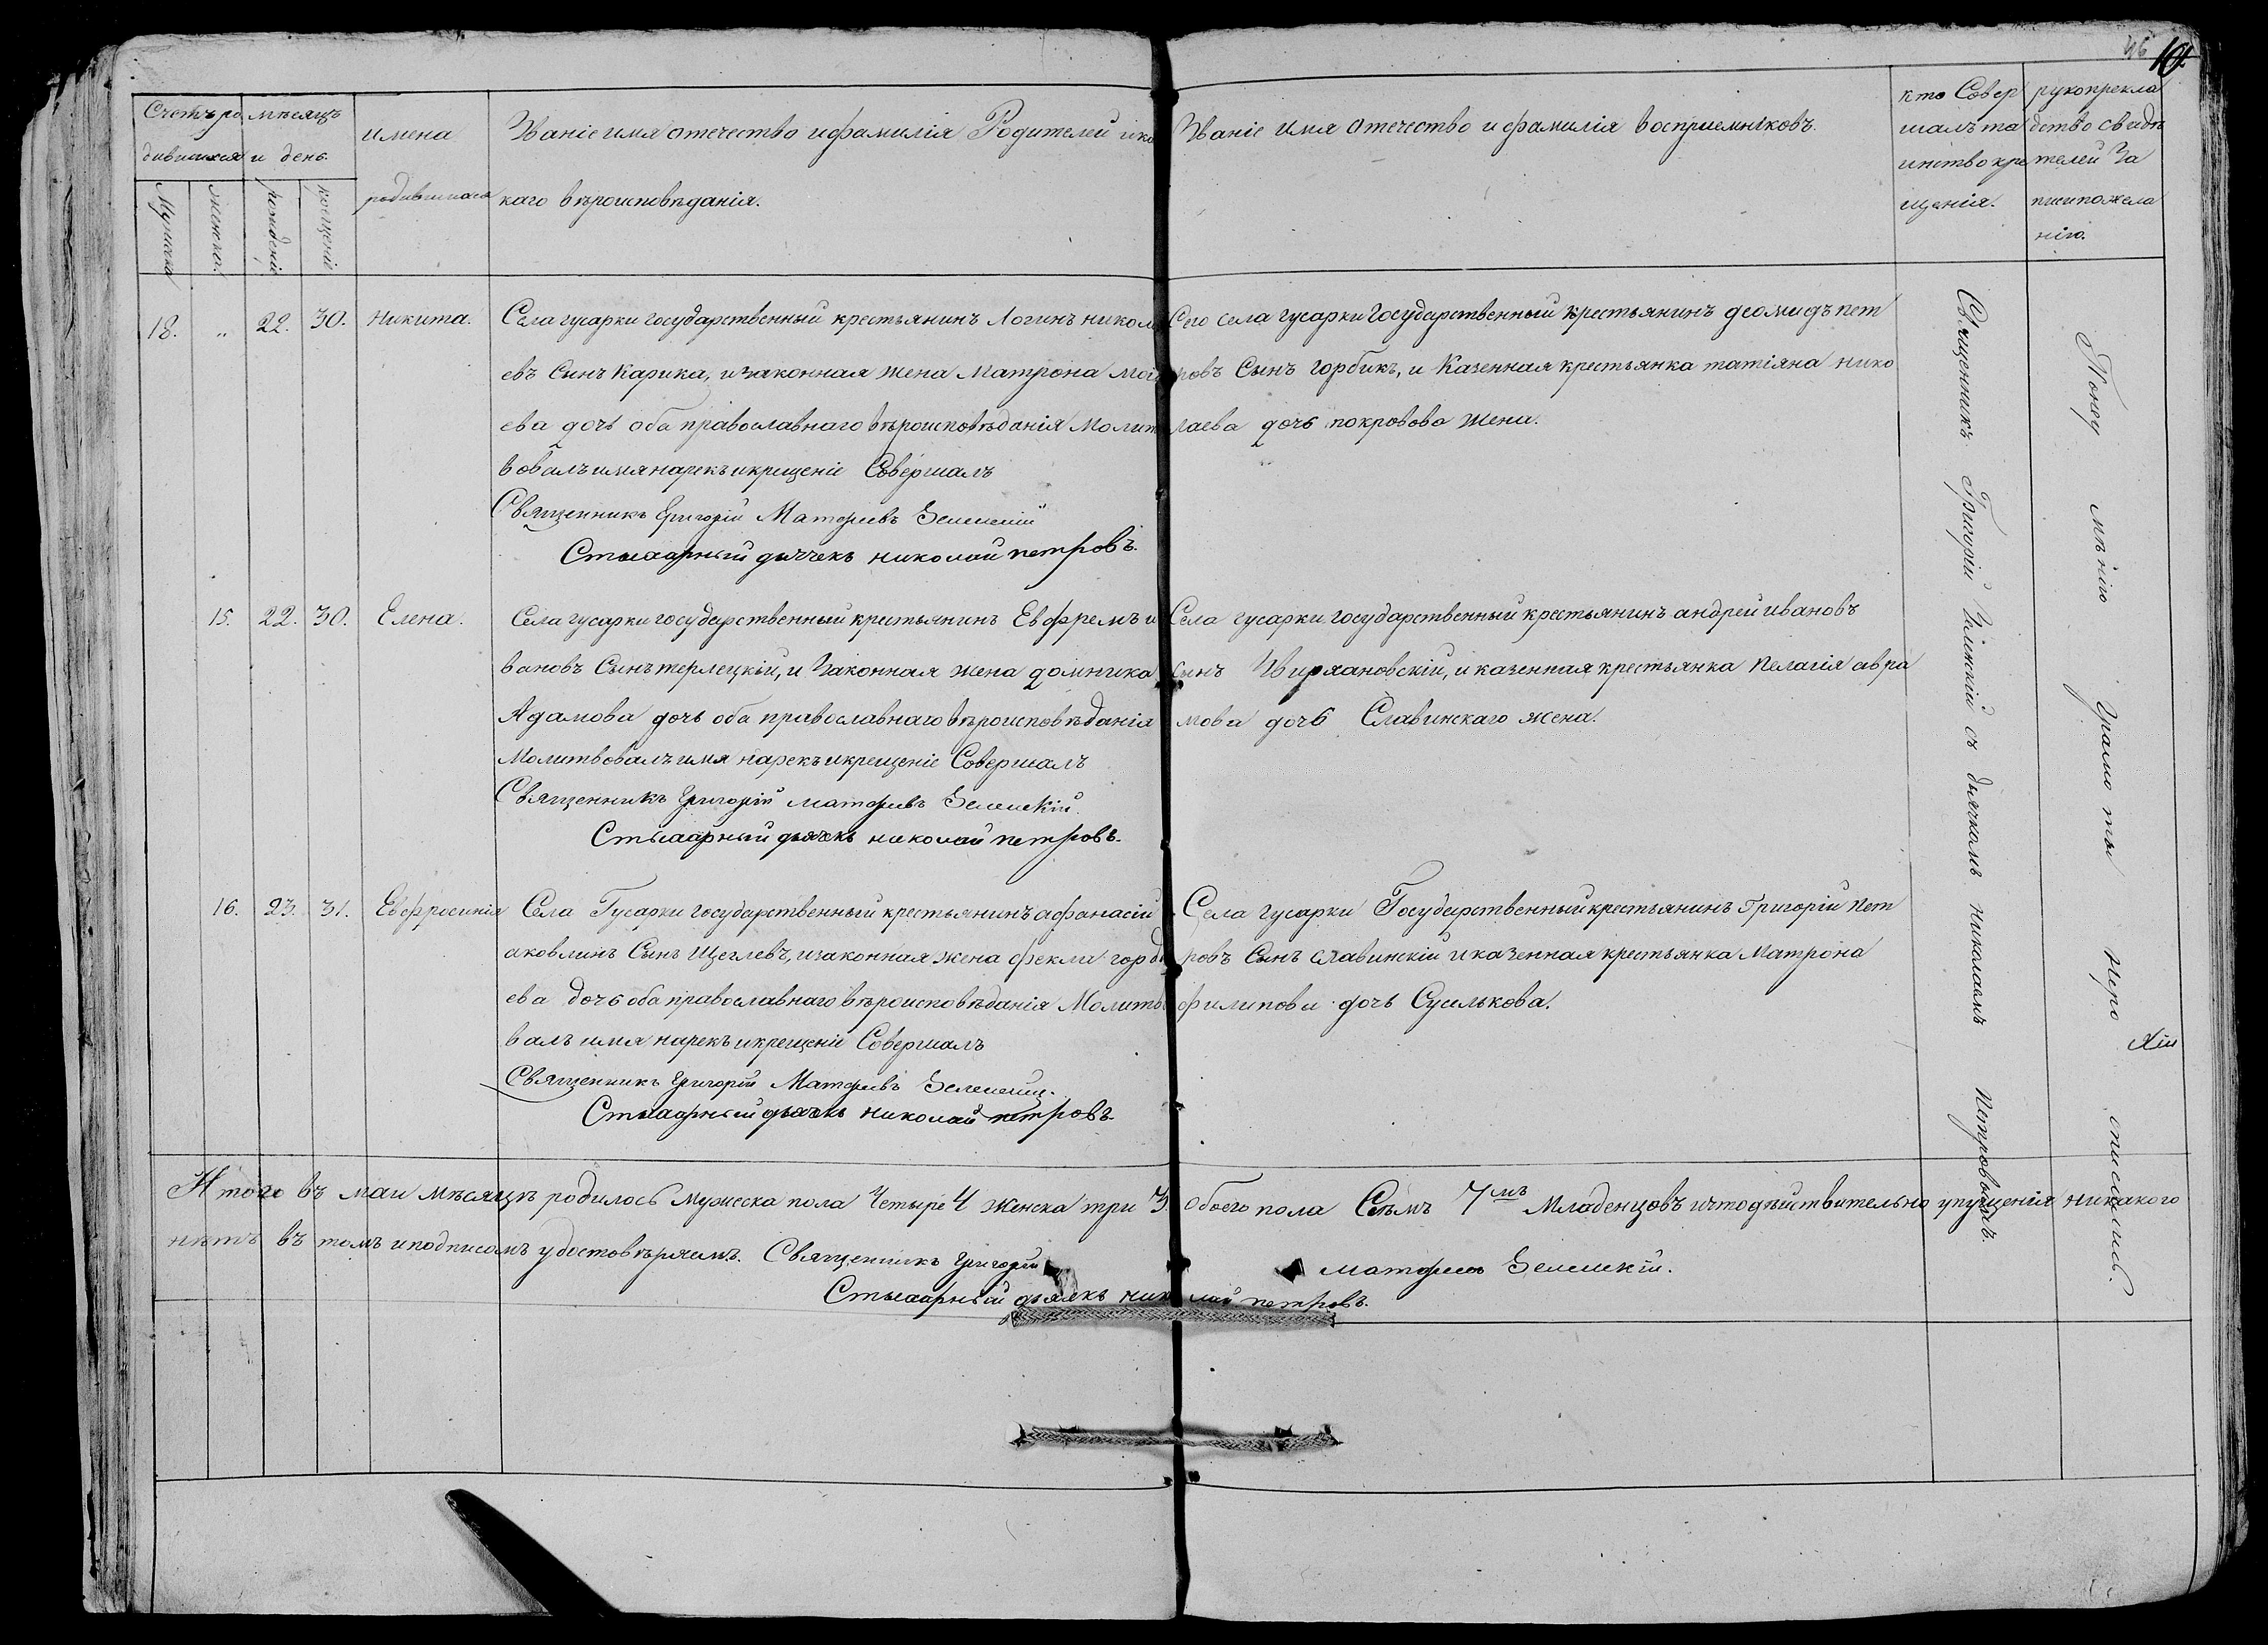 46
Счетъ ро мѣсяцъ
дившихся и день.
Мужеска
женска.
рожденіе
крещеніе
имена
родившихся
Званіе имя отечество и фамилія Родителей и ка
каго вѣроисповѣданія.
Званіе имя отечество и фамилія воспріемниковъ.
кто Совер
шалъ та
инство кре
щенія.
рукоприкла
дство свидѣ
телей За
писи по жела
нію.
18. „ 22. 30. Никита.
Села гусарки государственный крестьянинъ Логинъ никол
евъ Сынъ Карика, и законная жена Матрона
ева дочь оба православнаго вѣроисповѣданія Молит
вовалъ имя нарекъ и крещеніе Совершалъ
Священникъ Григорій Матфіевъ Зеленскій
Стихарный дьячекъ николай петровъ.
Сего села гусарки Государственный крестьянинъ деомидъ пет
ровъ Сынъ горбикъ, и Казенная крестьянка татіяна нико
лаева дочь покровова жена.
15. 22. 30. Елена.
Села гусарки государственный крестьянинъ Евфремъ и
вановъ Сынъ терлецкій, и Законная жена домника
Адамова дочь оба православнаго вѣроисповѣданія
Молитвовалъ имя нарекъ и крещеніе Совершалъ
Священникъ Григорій матфіевъ Зеленскій
Стихарный дьячекъ николай петровъ.
Села гусарки государственный крестьянинъ андрей ивановъ
сынъ Цвиряановскій, и казенная крестьянка пелагія авра
мова дочь Славинскаго жена.
16. 23. 31. Евфросинія
Села Гусарки государственный крестьянинъ афанасій
аковлинъ Сынъ Щеглевъ, и законная жена фекла горд
ева дочь оба православнаго вѣроисповѣданія Молитв
валъ имя нарекъ и крещеніе Совершалъ
Священникъ Григорій Матфіевъ Зеленскій.
Стихарный дьячекъ николай петровъ.
Села гусарки Государственный крестьянинъ Григорій Пет
ровъ Сынъ славинскій и казенная крестьянка Матрона
филипова дочь Сусилькова.
Священникъ Григорій Зеленскій съ дьячкомъ николаемъ Петровымъ.
Понед мѣнію грамоты неро хіи списались.
Итого въ маи мѣсяцѣ родилось мужеска пола Четыре 4 женска три 3. обоего пола Сѣмъ 7мъ Младенцовъ и что дѣйствительно упущенія никакого
нѣтъ въ томъ и подписомъ удостовѣряемъ. Священникъ Григорій Матфіевъ Зеленскій.
Стихарный дьячекъ николай петровъ.